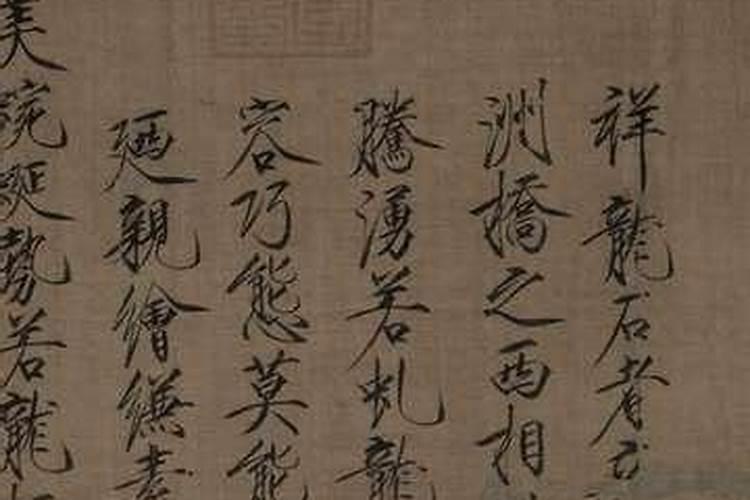 祥龍石者立
洲橋之西相
騰湧若虬龍
容巧態莫能
廼親繪縑素
美蜿蜒勢若龍